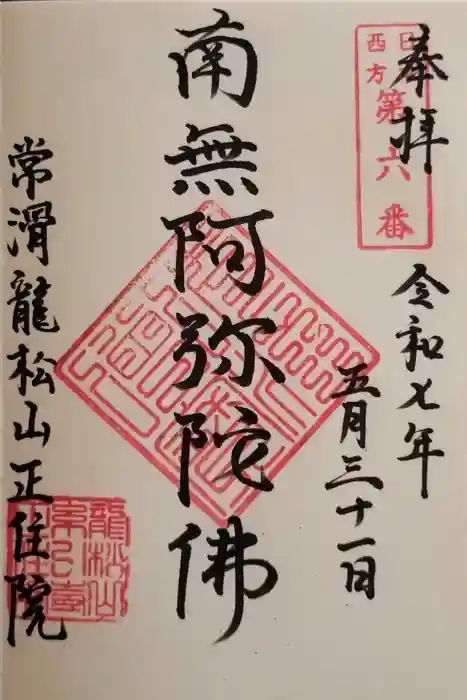 奉拝
日
西方
第六番
令和七年
五月三十一日
南無阿弥陀佛
常滑龍松山正住院
龍松山